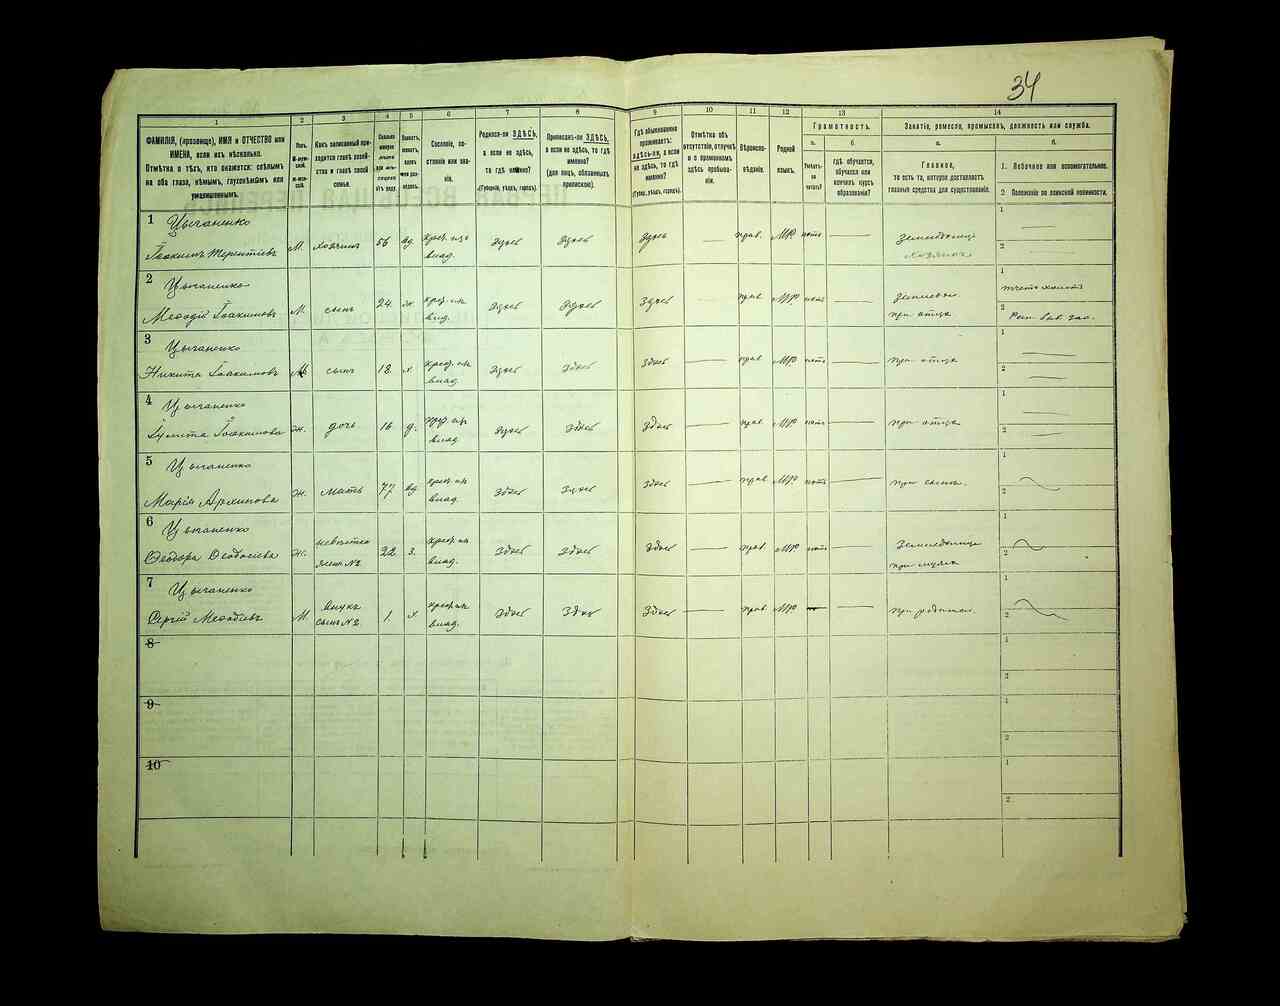 34
1 2 3 4 5 6 7 8 9 10 11 12 13 14
ФАМИЛІЯ, (прозвище), ИМЯ и ОТЧЕСТВО или
ИМЕНА, если ихъ нѣсколько.
Отмѣтка о тѣхъ, кто окажется: слѣпымъ
на оба глаза, нѣмымъ, глухонѣмымъ или
умалишеннымъ.
Полъ.
Какъ записанный при-
ходится главѣ хозяй-
ства и главѣ своей
семьи.
Сословіе, со-
стояніе или зва-
ніе.
Родился-ли ЗДѢСЬ,
а если не здѣсь,
то гдѣ именно?
(Губернія, уѣздъ, городъ).
Приписанъ-ли ЗДѢСЬ,
а если не здѣсь, то гдѣ
именно?
(для лицъ, обязанныхъ
припискою).
Гдѣ обыкновенно
проживаетъ:
здѣсь-ли, а если
не здѣсь, то гдѣ
именно?
(Губерн., уѣздъ, городъ).
Отмѣтка объ
отсутствіи, отлучкѣ
и о временномъ
здѣсь пребыва-
ніи.
Вѣроиспо-
вѣданіе.
Родной
языкъ.
Грамотность.
а.
Умѣетъ
ли
читать?
б.
гдѣ обучается,
обучался или
кончилъ курсъ
образованія?
Занятіе, ремесло, промыселъ, должность или служба.
а.
Главное,
то есть то, которое доставляетъ
главныя средства для существованія.
б.
1. Побочное или вспомогательное.
2 Положеніе по воинской повинности.
1 Цыганенко
Іоакимъ Терентіевъ М. хозяинъ 56 вд. крест. изъ влад. здѣсь здѣсь здѣсь — прав. МР. нѣтъ — Земледѣлецъ хозяинъ 1 — 2 —
2 Цыганенко
Меѳодій Іоакимовъ М. сынъ 24 ж. влад. здѣсь здѣсь здѣсь — прав. МР. нѣтъ — при отцѣ 1 2
3 Цыганенко
Никита Іоакимовъ М сынъ 18 х. влад. здѣсь здѣсь здѣсь — прав. МР. нѣтъ — при отцѣ 1 — 2 —
4 Цыганенко
Іоакимова ж. дочь 16 д. влад. здѣсь здѣсь здѣсь — прав. МР. нѣтъ — при отцѣ 1 — 2 —
5 Цыганенко
Марія Архипова ж. мать 77 вд. влад. здѣсь здѣсь здѣсь — прав. МР. нѣтъ — при сынѣ. 1 2
6 Цыганенко
Ѳеодора Ѳеодосіева ж. невѣстка жена №2 22 з. влад. здѣсь здѣсь здѣсь — прав. МР. нѣтъ — при мужѣ 1 2
7 Цыганенко
Сергій Меѳодіевъ М. внукъ сынъ №2 1. х влад. здѣсь здѣсь здѣсь — прав. МР — — 1 2
8 1 2
9 1 2
10 1 2